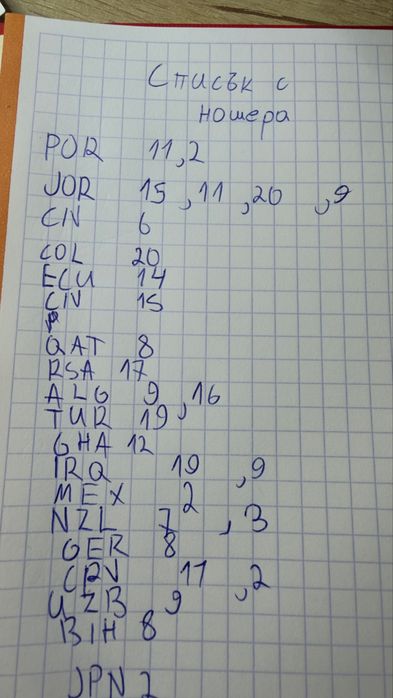 Списък с
номера
POR 11,2
JOR 15,11,20,9
CIV 6
COL 20
ECU 14
CIV 15
QAT 8
RSA 17
ALG 9,16
TUR 19
GHA 12
IRQ 19,9
MEX 2
NZL 7,3
GER 8
CPV 11,2
UZB 9
BIH 8
JPN 2